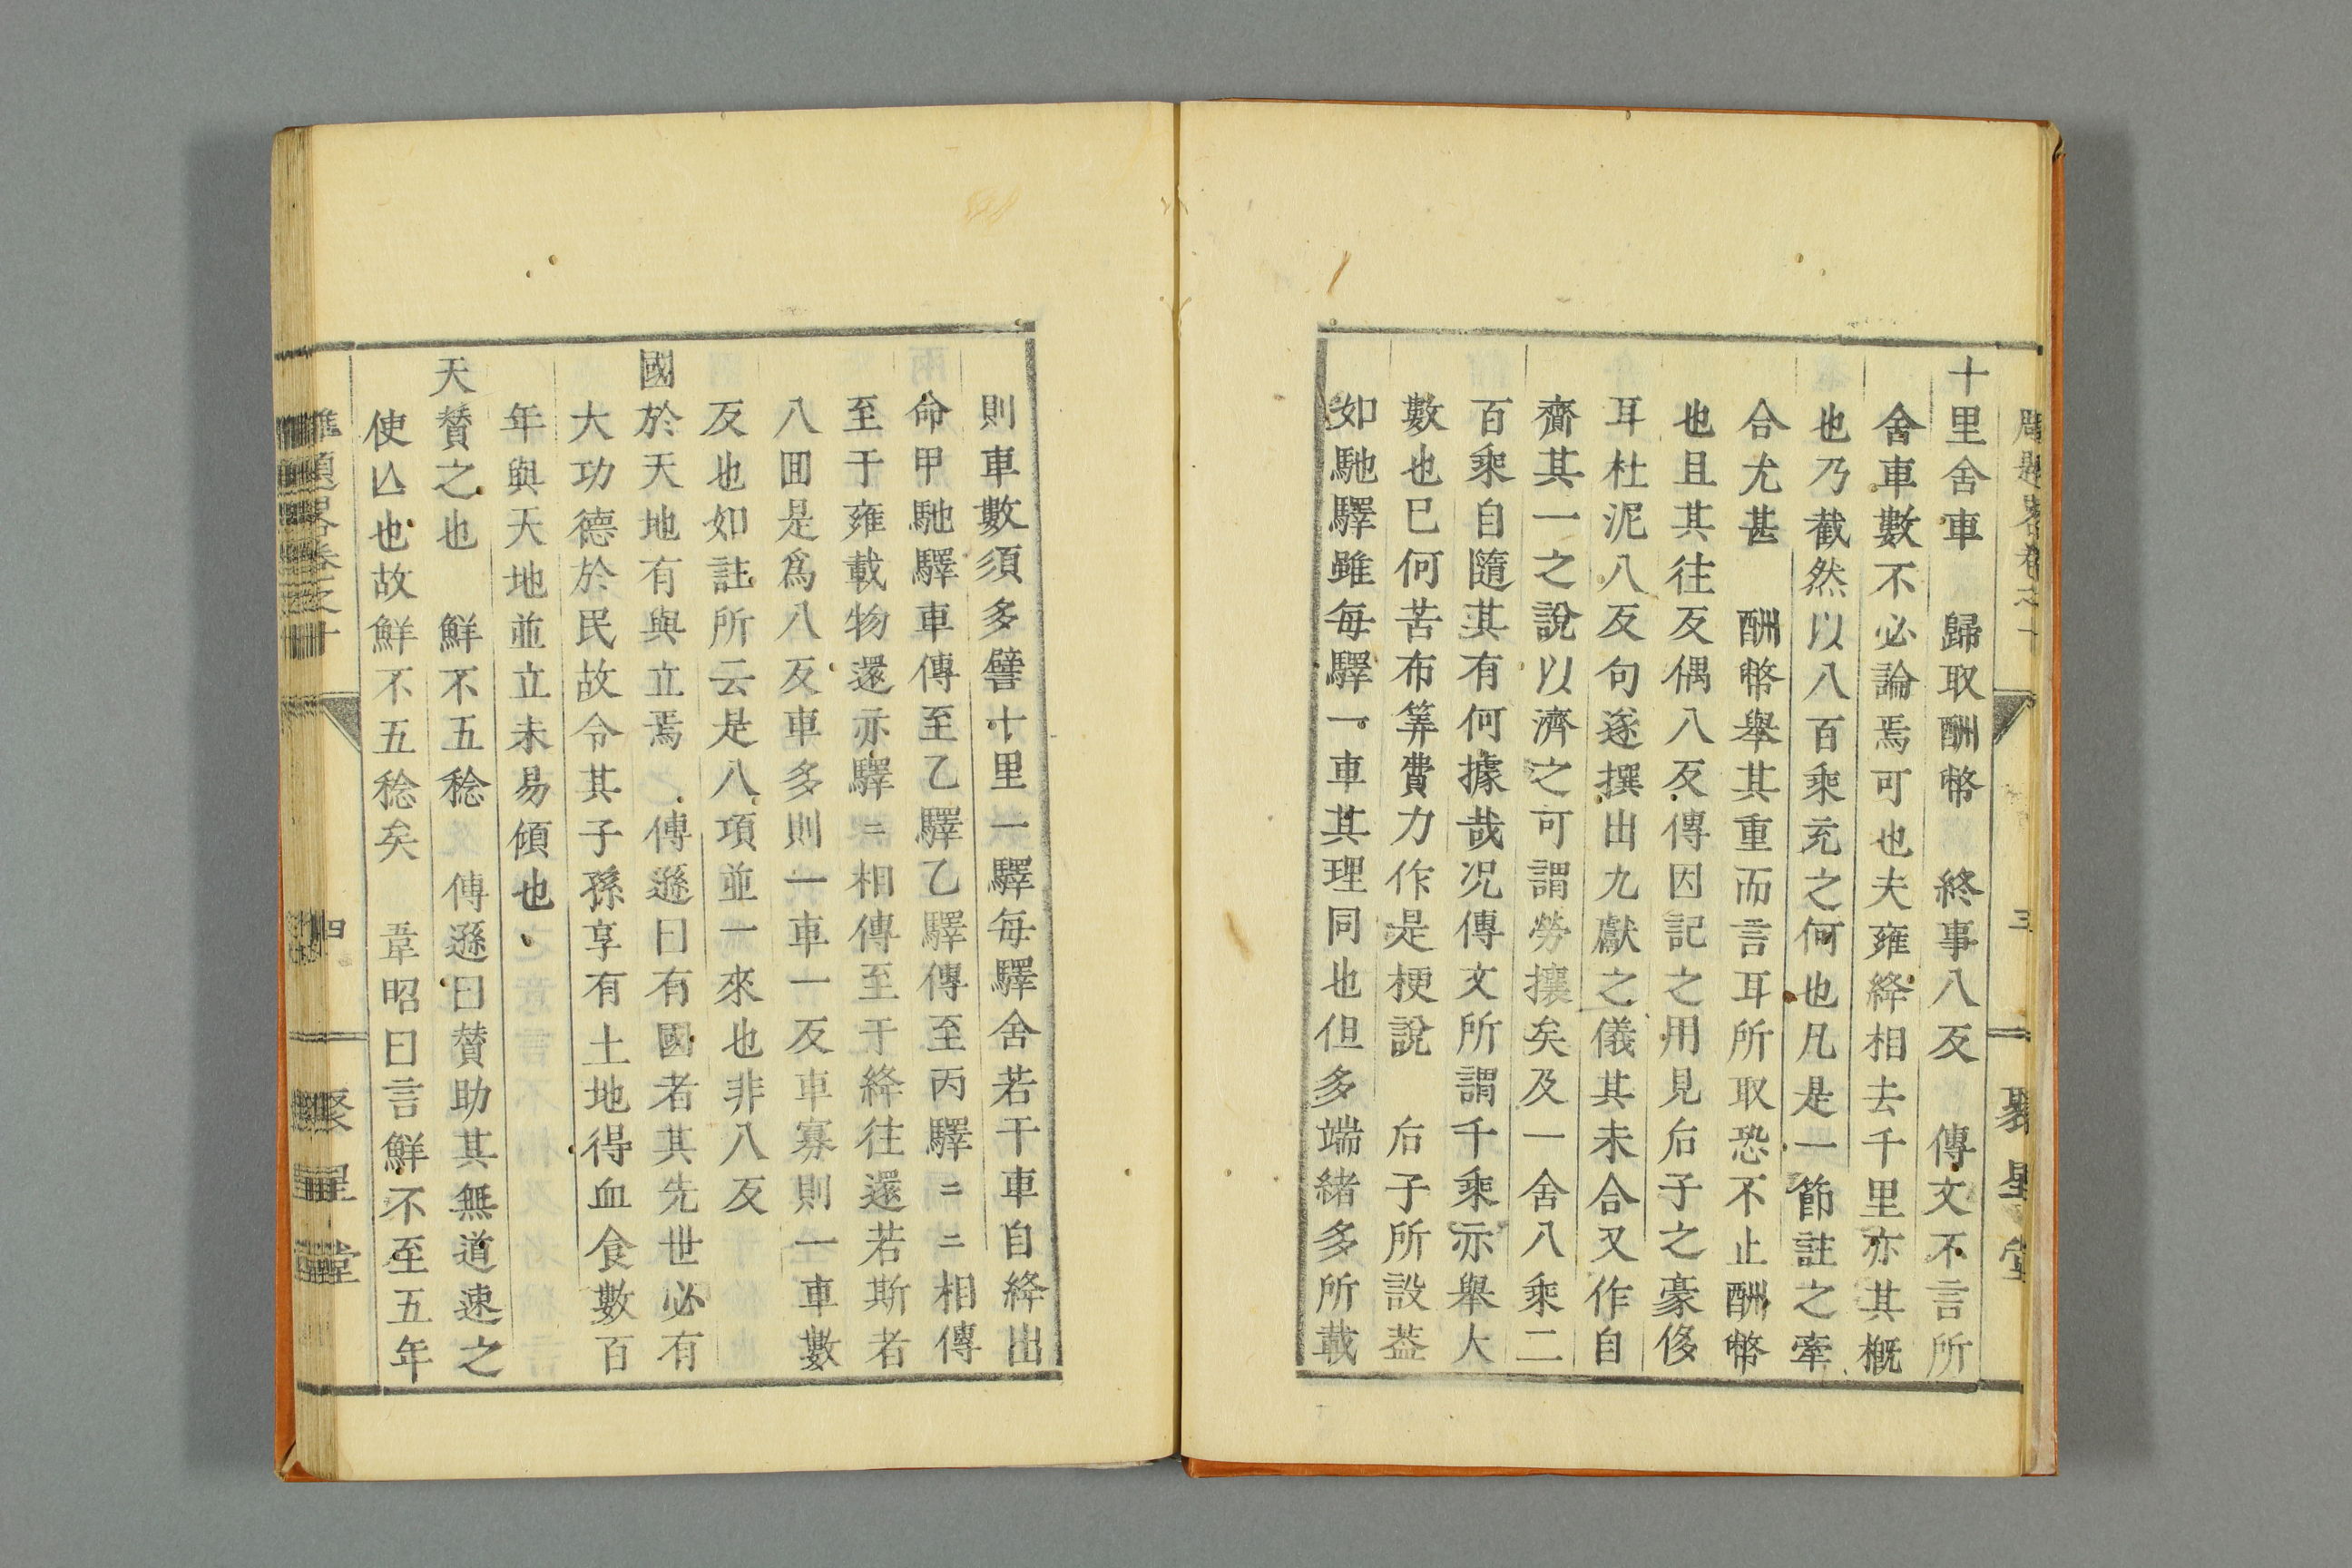 十里舍車　歸取酬幣　終事八反　傳文不言所
舍車數不必論焉可也夫雍絳相去千里亦其概
也乃截然以八百乘充之何也凡是一節註之牽
合尤甚　酬幣舉其重而言耳所取恐不止酬幣
也且其往反偶八反傳因記之用見后子之豪侈
耳杜泥八反句遂撰出九獻之儀其未合又作自
齎其一之說以濟之可謂勞攘矣及一舍八乘二
百乘自隨其有何據哉况傳文所謂千乘亦舉大
數也巳何苦布筭費力作是梗說　后子所設葢
如馳驛雖每驛一車其理同也但多端緒多所載
三
聚星堂
則車數須多譬十里一驛每驛舍若干車自絳出
命甲馳驛車傳至乙驛乙驛傳至丙驛ニニ相傳
至于雍載物還亦驛ニ相傳至于絳往還若斯者
八囬是爲八反車多則一車一反車寡則一車數
反也如註所云是八項並一來也非八反
國於天地有與立焉　傳遜曰有國者其先世必有
大功德於民故令其子孫享有土地得血食數百
年與天地並立未易傾也
天賛之也　鮮不五稔　傳遜曰賛助其無道速之
使亾也故鮮不五稔矣　韋昭曰言鮮不至五年
四
聚星堂